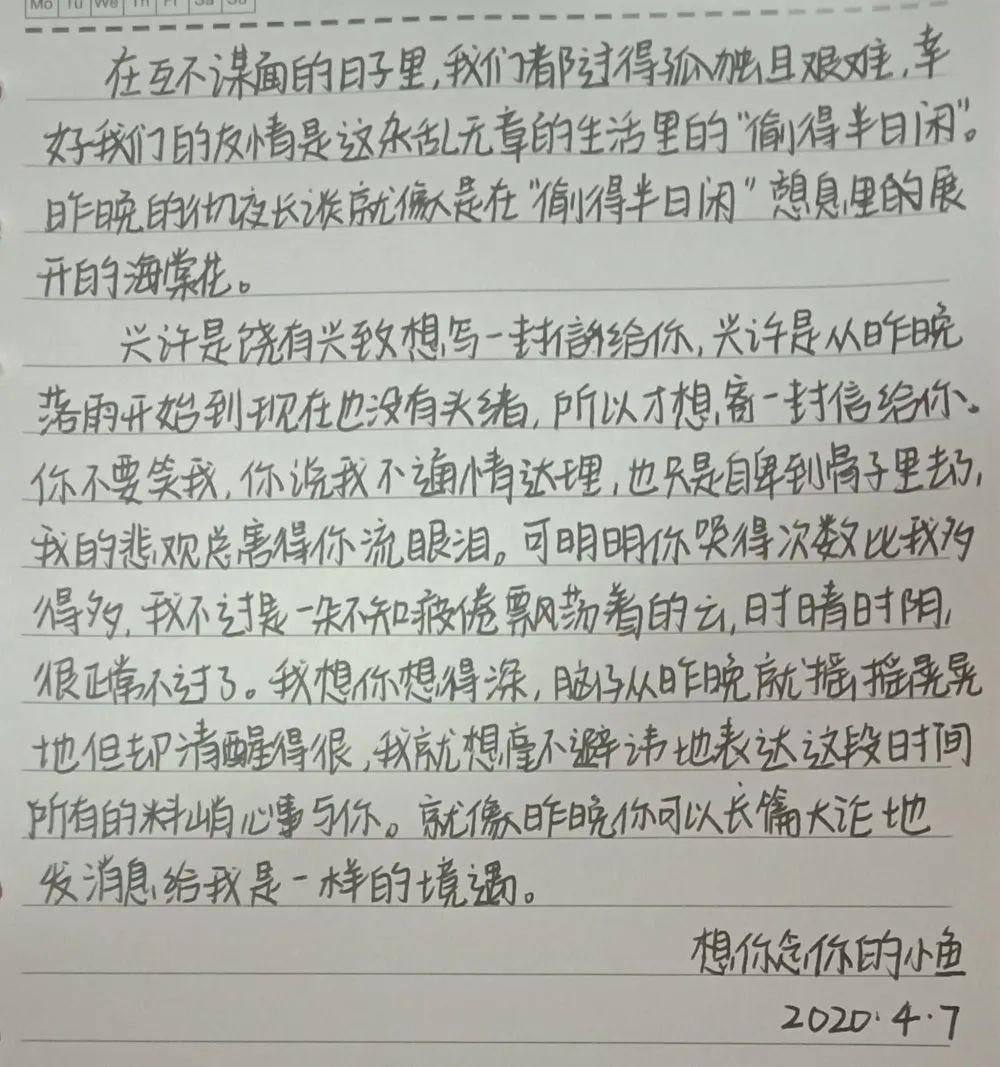 Mo Tu We Th Fr Sa Su
在互不谋面的日子里，我们都过得孤独且艰难，幸
好我们的友情是这杂乱无章的生活里的“偷得半日闲”。
昨晚的彻夜长谈就像是在“偷得半日闲”憩息里的展
开的海棠花。
兴许是饶有兴致想写一封信给你，兴许是从昨晚
落雨开始到现在也没有头绪，所以才想寄一封信给你。
你不要笑我，你说我不通情达理，也只是自卑到骨子里去了，
我的悲观总害得你流眼泪。可明明你哭得次数比我多
得多，我不过是一朵不知疲倦飘荡着的云，时晴时阴，
很正常不过了。我想你想得深，脑仔从昨晚就摇摇晃晃
地但却清醒得很，我就想毫不避讳地表达这段时间
所有的料峭心事与你。就像昨晚你可以长篇大论地
发消息给我是一样的境遇。
想你念你的小鱼
2020.4.7